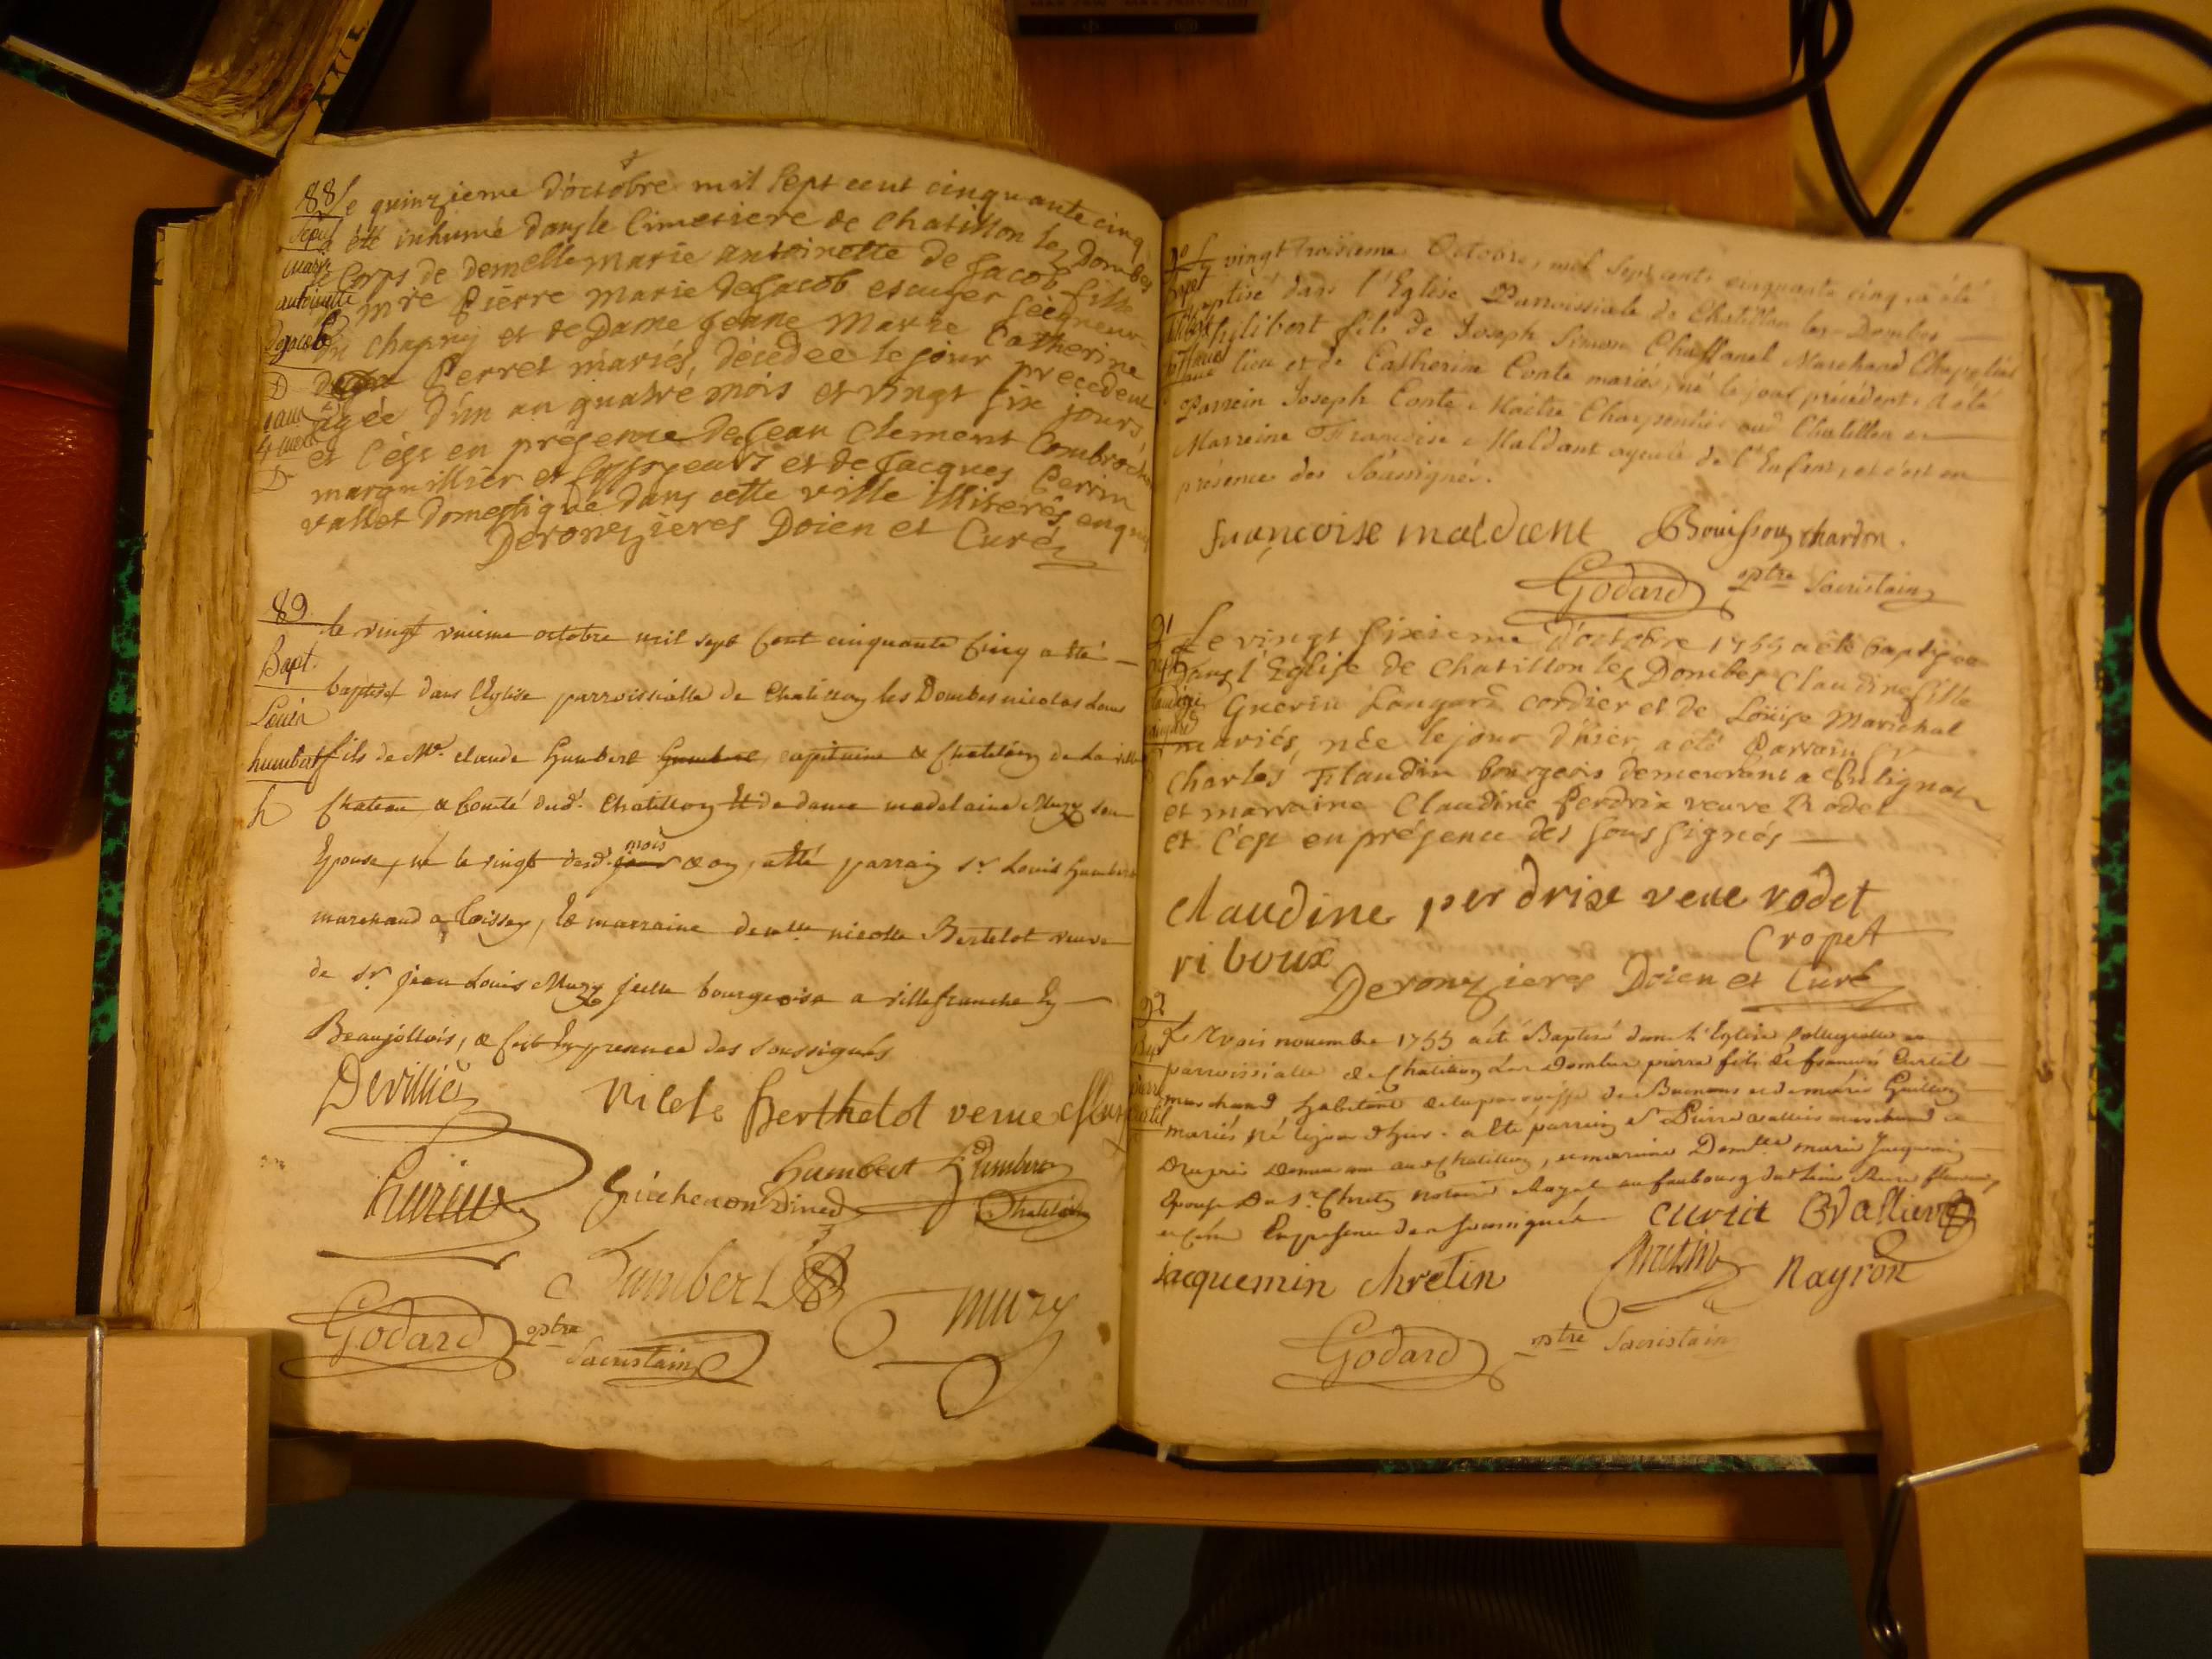 88
Sepul
marie
antoinette
Dejacob
D
1 an
4 mois
D
le quinzieme d'octobre mil sept cent cinquante cinq
a été inhumé dans le Cimetiere de Chatillon lez Dombes
le Corps de demelle marie antoinette de Jacob fille
de mre Pierre Marie de Jacob escuyer seigneur
et de Dame Jenne Marie Catherine
Perret mariés, décédée le jour precedent
agée d'un an quatre mois et vingt six jours,
et c'est en présence de Jean Clement
marguillier et et de Jacques Perrin
vallet domestique dans cette ville illiterés enquis
Deronzieres Doien et Curé
89
Bapt.
Louis
humbert
h
le vingt unieme octobre mil sept cent cinquante cinq a été
baptisé dans l'Eglise parroissialle de Chatillon les Dombes nicolas Louis
fils de Mr. claude humbert humbert capitaine & Chatelain de la ville
Chateau & Comté dud. Chatillon Et de dame madelaine Muzy son
Epouse, né le vingt desd. jour mois & an, a été parrain sr. Louis humbert
marchand a Toissey, Et marraine demlle. nicolle Bertelot veuve
de Sr. jean Louis Muzy bourgeoise a villefranche En
Beaujollois, & fait En presence des soussignés
Devillie
Nicole Berthelot veuve Muzy
humbert humbert
Guichenon Dined Chatelain
humbert
muzy
Godard ptre
Sacristain
90
Bapt
Le vingt troisieme Octobre, mil sept cents cinquante cinq, a été
baptisé dans l'Eglise Parroissiale de Chatillon les-Dombes
philibert fils de Joseph Simon Chaffanel Marchand Chapelier
lieu et de Catherine Conte mariés, né le jour précédent, a été
Parrein Joseph Conte Maître Charpentier aud. Chatillon et
Marreine Françoise Maldant ayeule de l'Enfant, et c'est en
présence des Soussignés.
françoise maldant Bouisson chardon.
Godard ptre Sacristain
91
Le vingt sixieme d'octobre 1755 a été baptisée
dans l'Eglise de Chatillon les Dombes Claudine fille
Guerin Langard cordier et de Louise Marichal
mariés, née le jour d'hier, a été Parrain Sr
Charles Flaudin bourgeois demeurant a
et marraine Claudine Perdrix veuve Rodet
et c'est en présence des sous signés
claudine perdrix veue rodet
riboux Cropet
Deronzieres Doien et Curé
92
Bap
pierre
Curtil
Le trois novembre 1755 a été Baptisé dans l'Eglise Collegialle et
parroissialle de Chatillon Les Dombes pierre fils de françois Curtil
marchand habitant de la parroisse de Buenans et de marie Guillon
mariés né le jour d'hier. a été parrain Sr Pierre Vallier marchand
demeurant aud Chatillon, et marraine Demlle marie Jacquemin
Epouse du Sr. Chretin notaire Royal au faubourg
En presence des soussignés curtit Vallier
jacquemin chretin Chretin Nayron
Godard ptre Sacristain